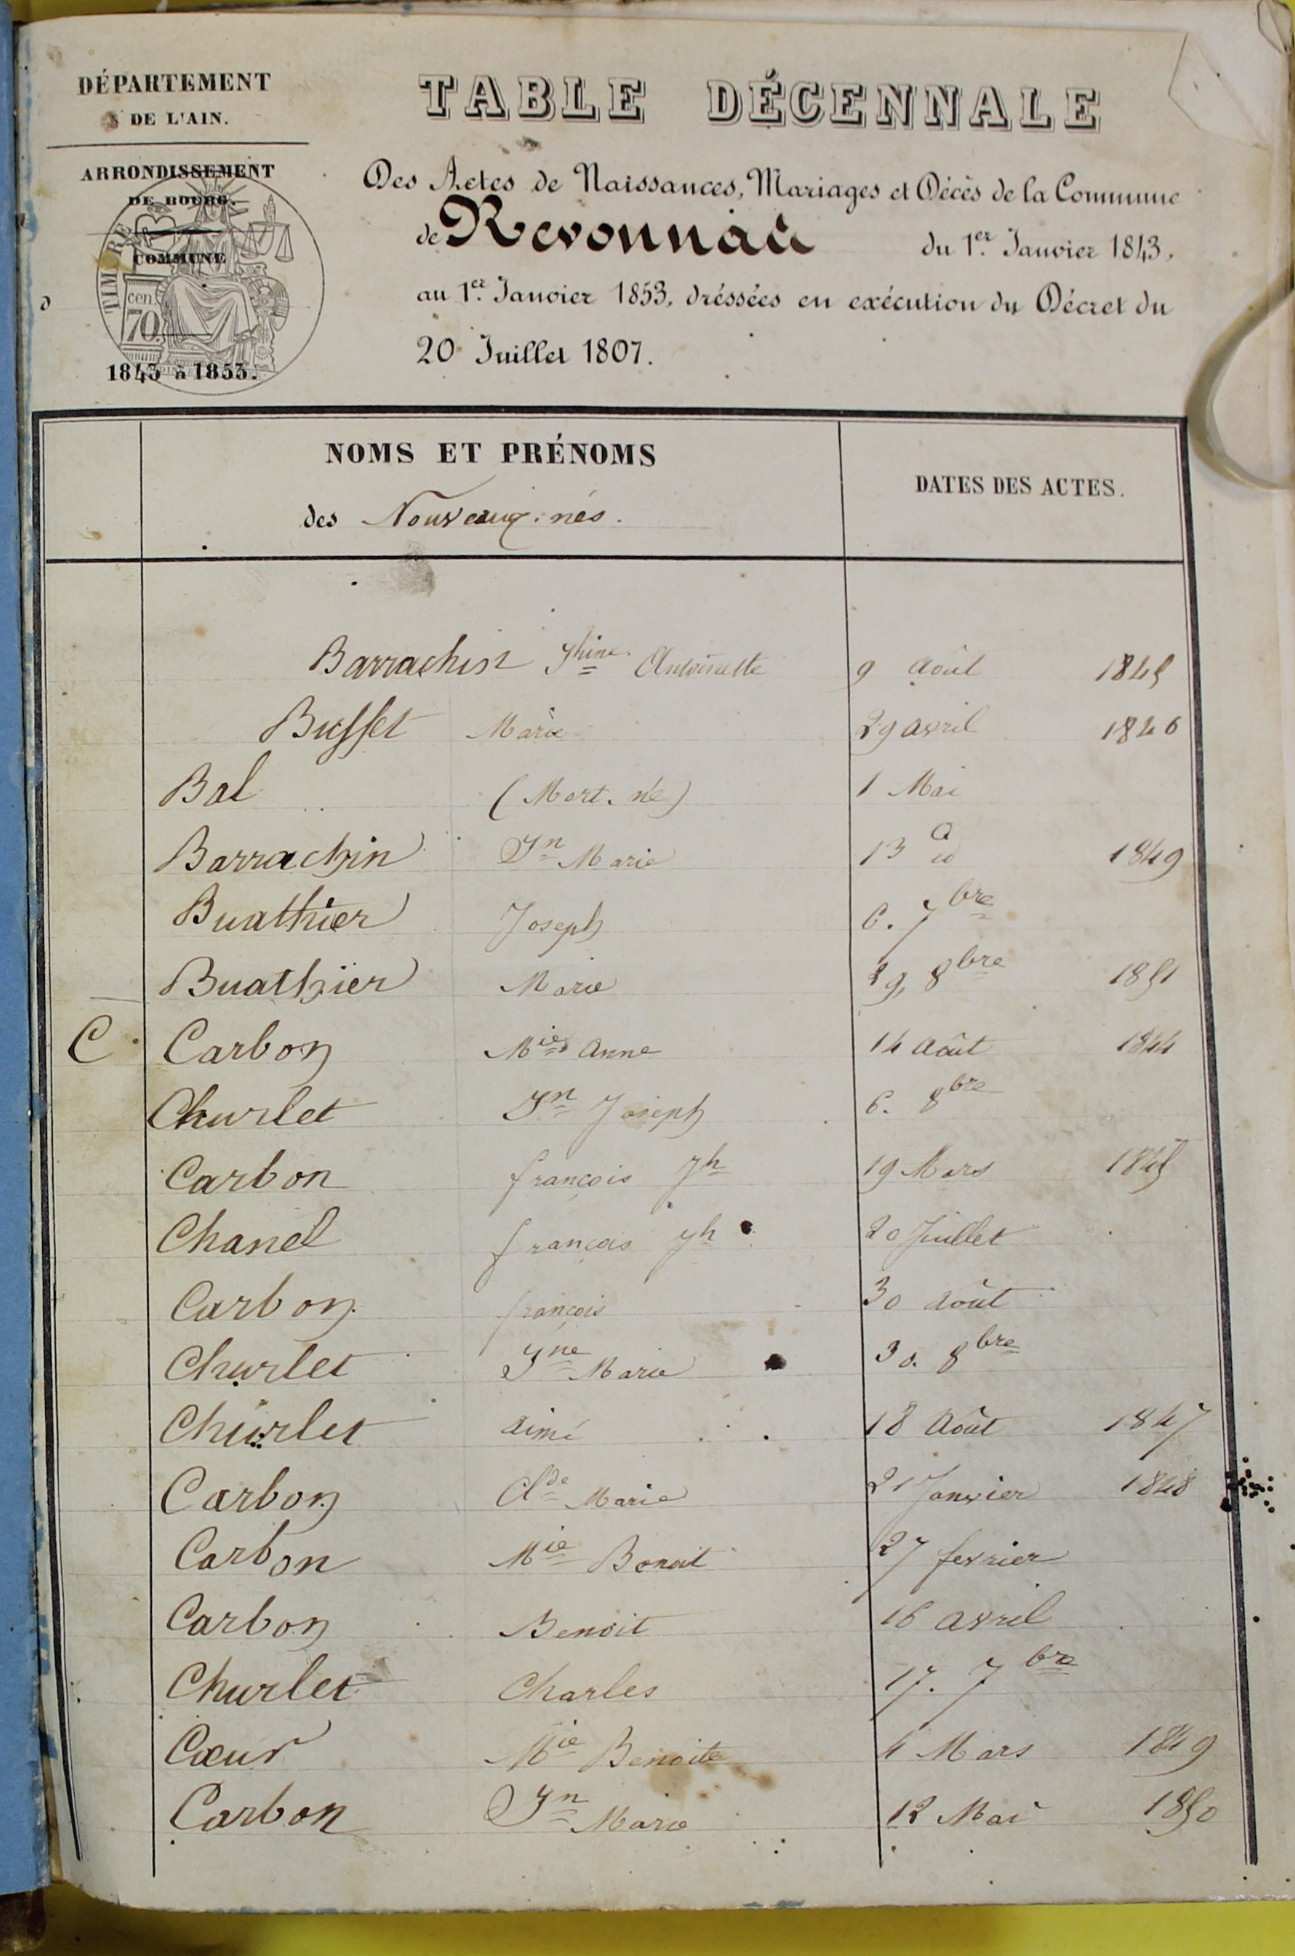 DÉPARTEMENT
DE L'AIN.
ARRONDISSEMENT
DE BOURG.
COMMUNE
TIMBRE
cen
70
1843 à 1853.
TABLE DÉCENNALE
Des Actes de Naissances, Mariages et Décès de la Commune
de Revonnas du 1er Janvier 1843,
au 1er Janvier 1853, dréssées en exécution du Décret du
20 Juillet 1807.
NOMS ET PRÉNOMS
des Nouveaux-nés.
DATES DES ACTES.
Barrachin Jhine Antoinette 9 août 1845
Buffet Marie 29 avril 1846
Bal (Mort-né) 1 Mai
Barrachin Jn Marie 13 do 1849
Buathier Joseph 6. 7bre
Buathier Marie 19, 8bre 1851
C Carbon Mie Anne 14 août 1844
Churlet Jn Joseph 6. 8bre
Carbon françois Jh 19 Mars 1845
Chanel françois Jh 20 Juillet
Carbon françois 30 août
Churlet Jne Marie 30. 8bre
Churlet aimé 18 Août 1847
Carbon Clde Marie 21 Janvier 1848
Carbon Mie Benoit 27 fevrier
Carbon Benoit 16 avril
Churlet Charles 17. 7bre
Cœur Mie Benoite 4 Mars 1849
Carbon Jn Marie 12 Mai 1850